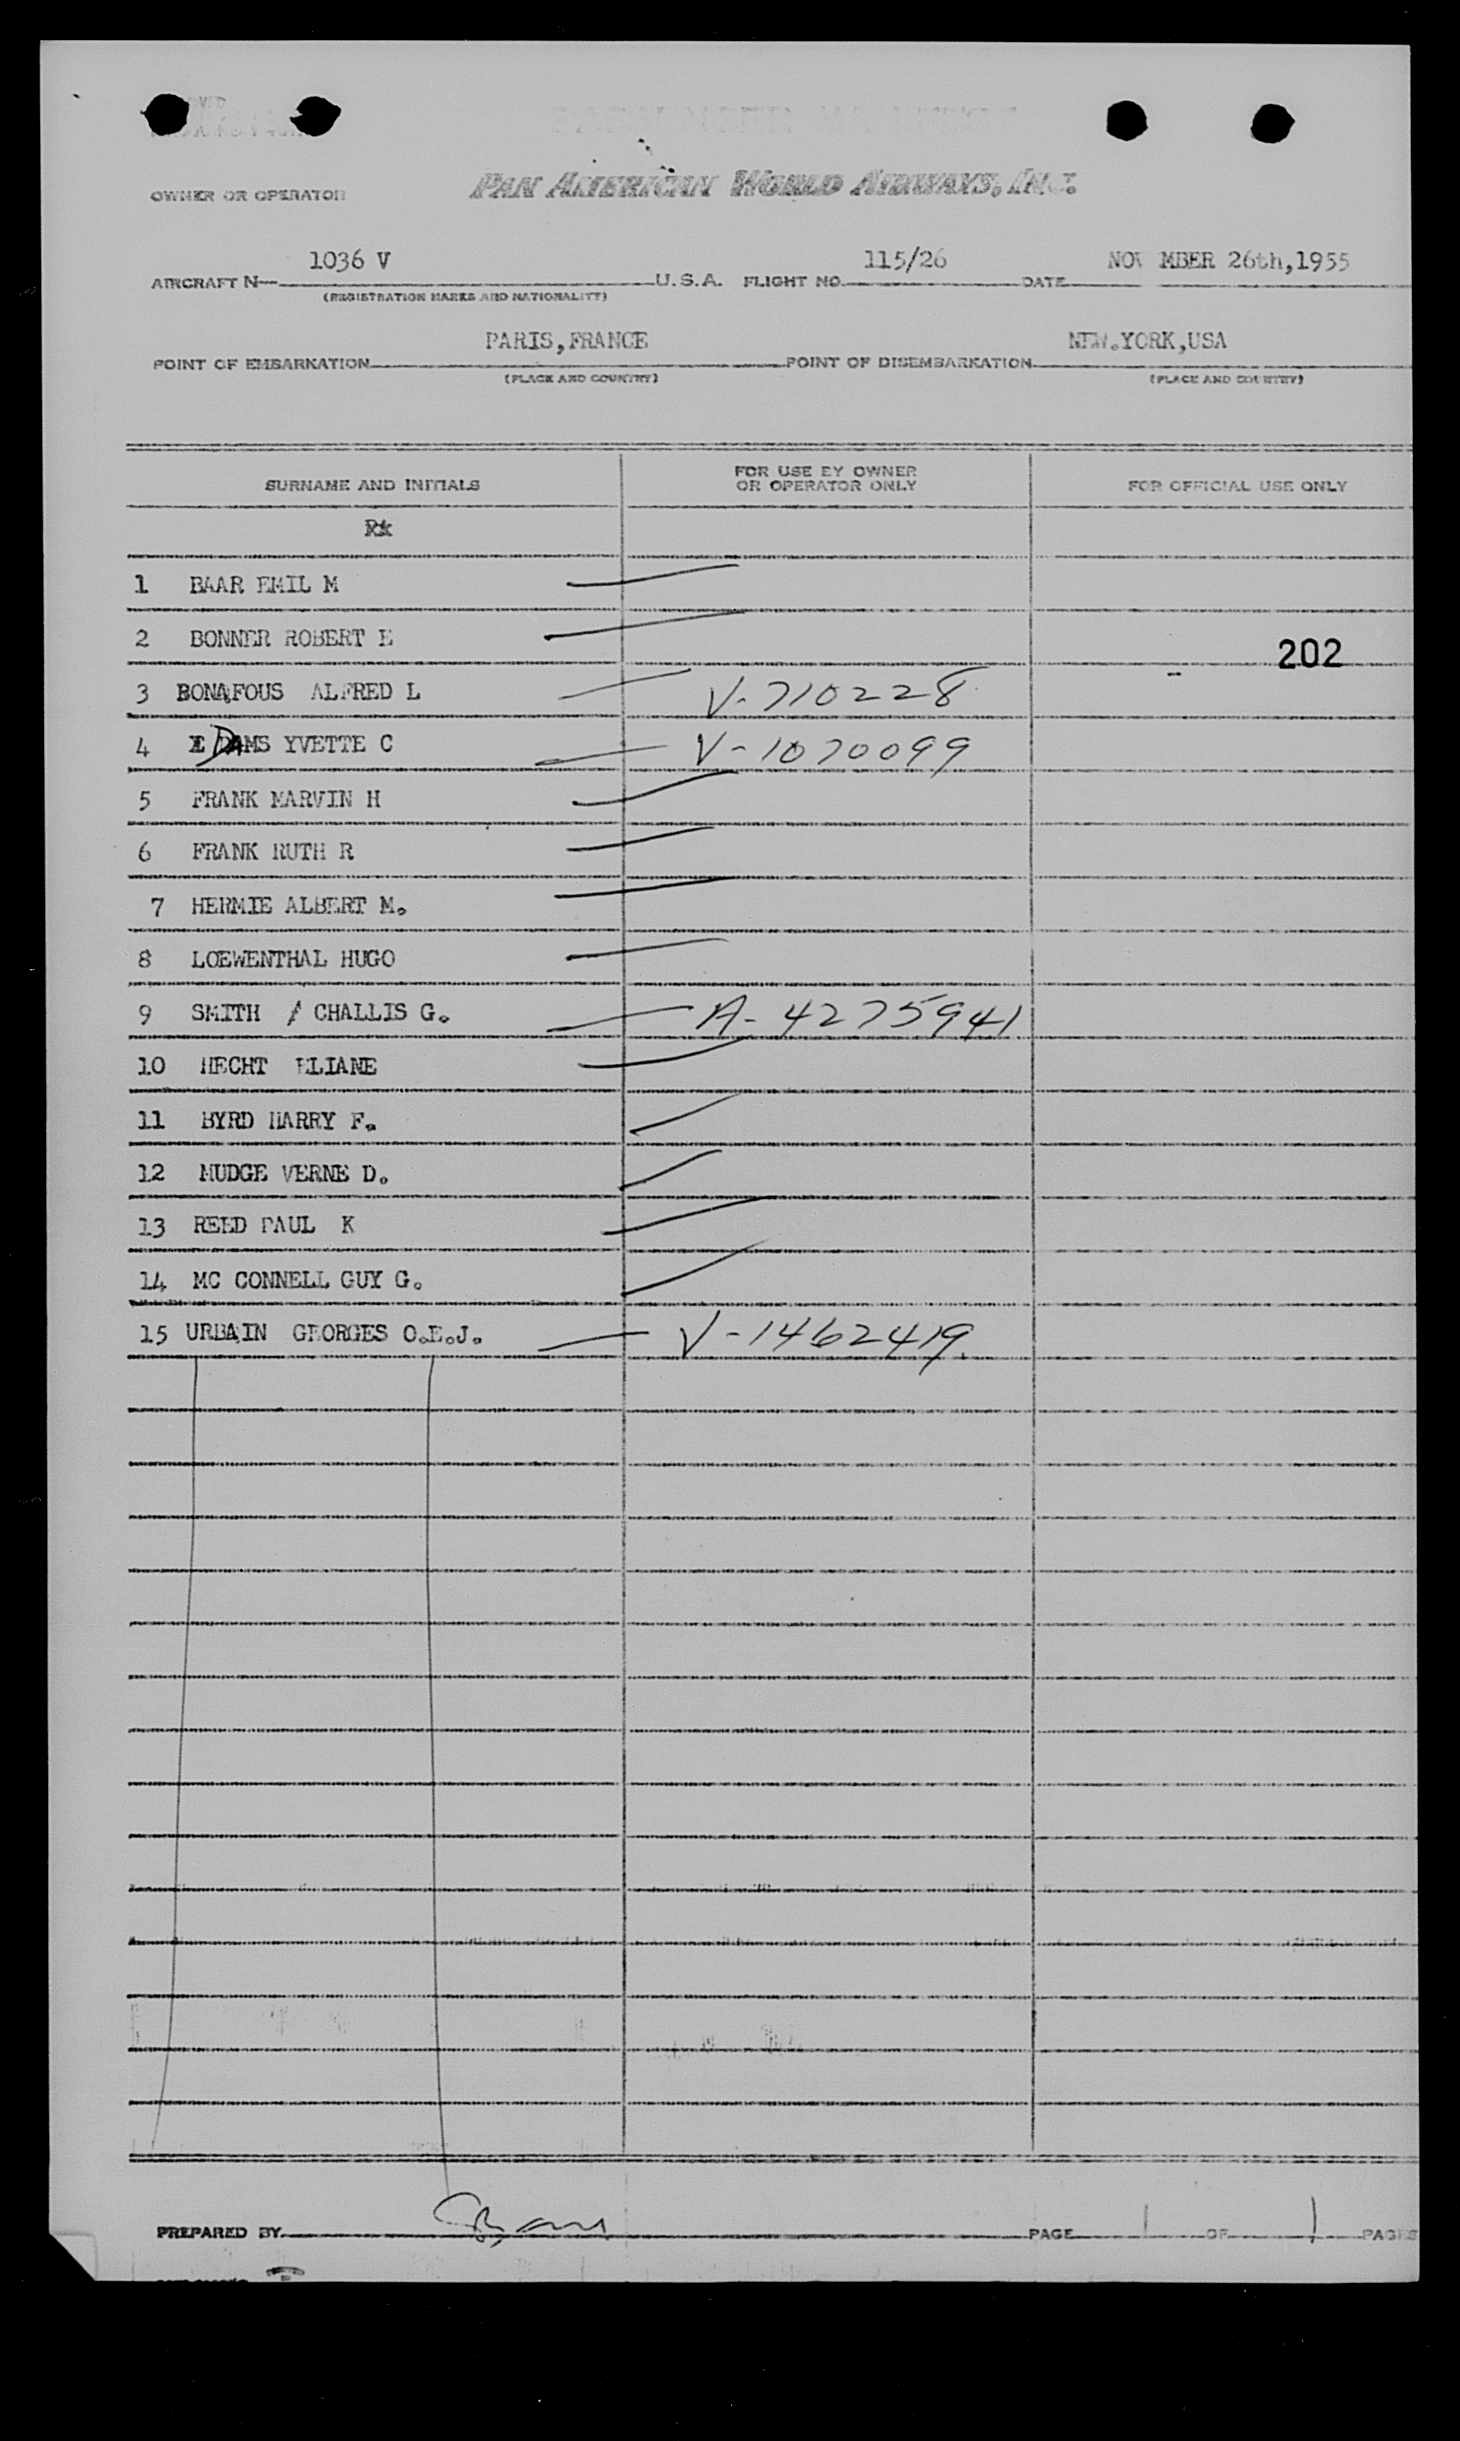 OWNER OR OPERATOR PAN AMERICAN WORLD AIRWAYS, INC.
1036 V 115/26 NOV MBER 26th,1955
AIRCRAFT N— U.S.A. FLIGHT NO. DATE
(REGISTRATION MARKS AND NATIONALITY)
PARIS,FRANCE NEW.YORK,USA
POINT OF EMBARKATION POINT OF DISEMBARKATION
(PLACE AND COUNTRY) (PLACE AND COUNTRY)
SURNAME AND INITIALS FOR USE BY OWNER OR OPERATOR ONLY FOR OFFICIAL USE ONLY
1 BAAR EMIL M
2 BONNER ROBERT E
202
3 BONAFOUS ALFRED L V-710228
4 DAMS YVETTE C V-1070099
5 FRANK MARVIN H
6 FRANK RUTH R
7 HERMIE ALBERT M.
8 LOEWENTHAL HUGO
9 SMITH / CHALLIS G. A-4275941
10 HECHT ELIANE
11 BYRD HARRY F.
12 MUDGE VERNE D.
13 REED PAUL K
14 MC CONNELL GUY G.
15 URBAIN GEORGES O.E.J. V-1462419.
PREPARED BY PAGE 1 OF 1 PAGES